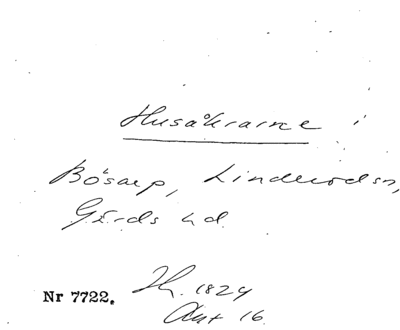 Husåkrarne i
Bösarp, Linderödsn,
Gärds hd
Nr 7722. Th. 1824
Akt 16